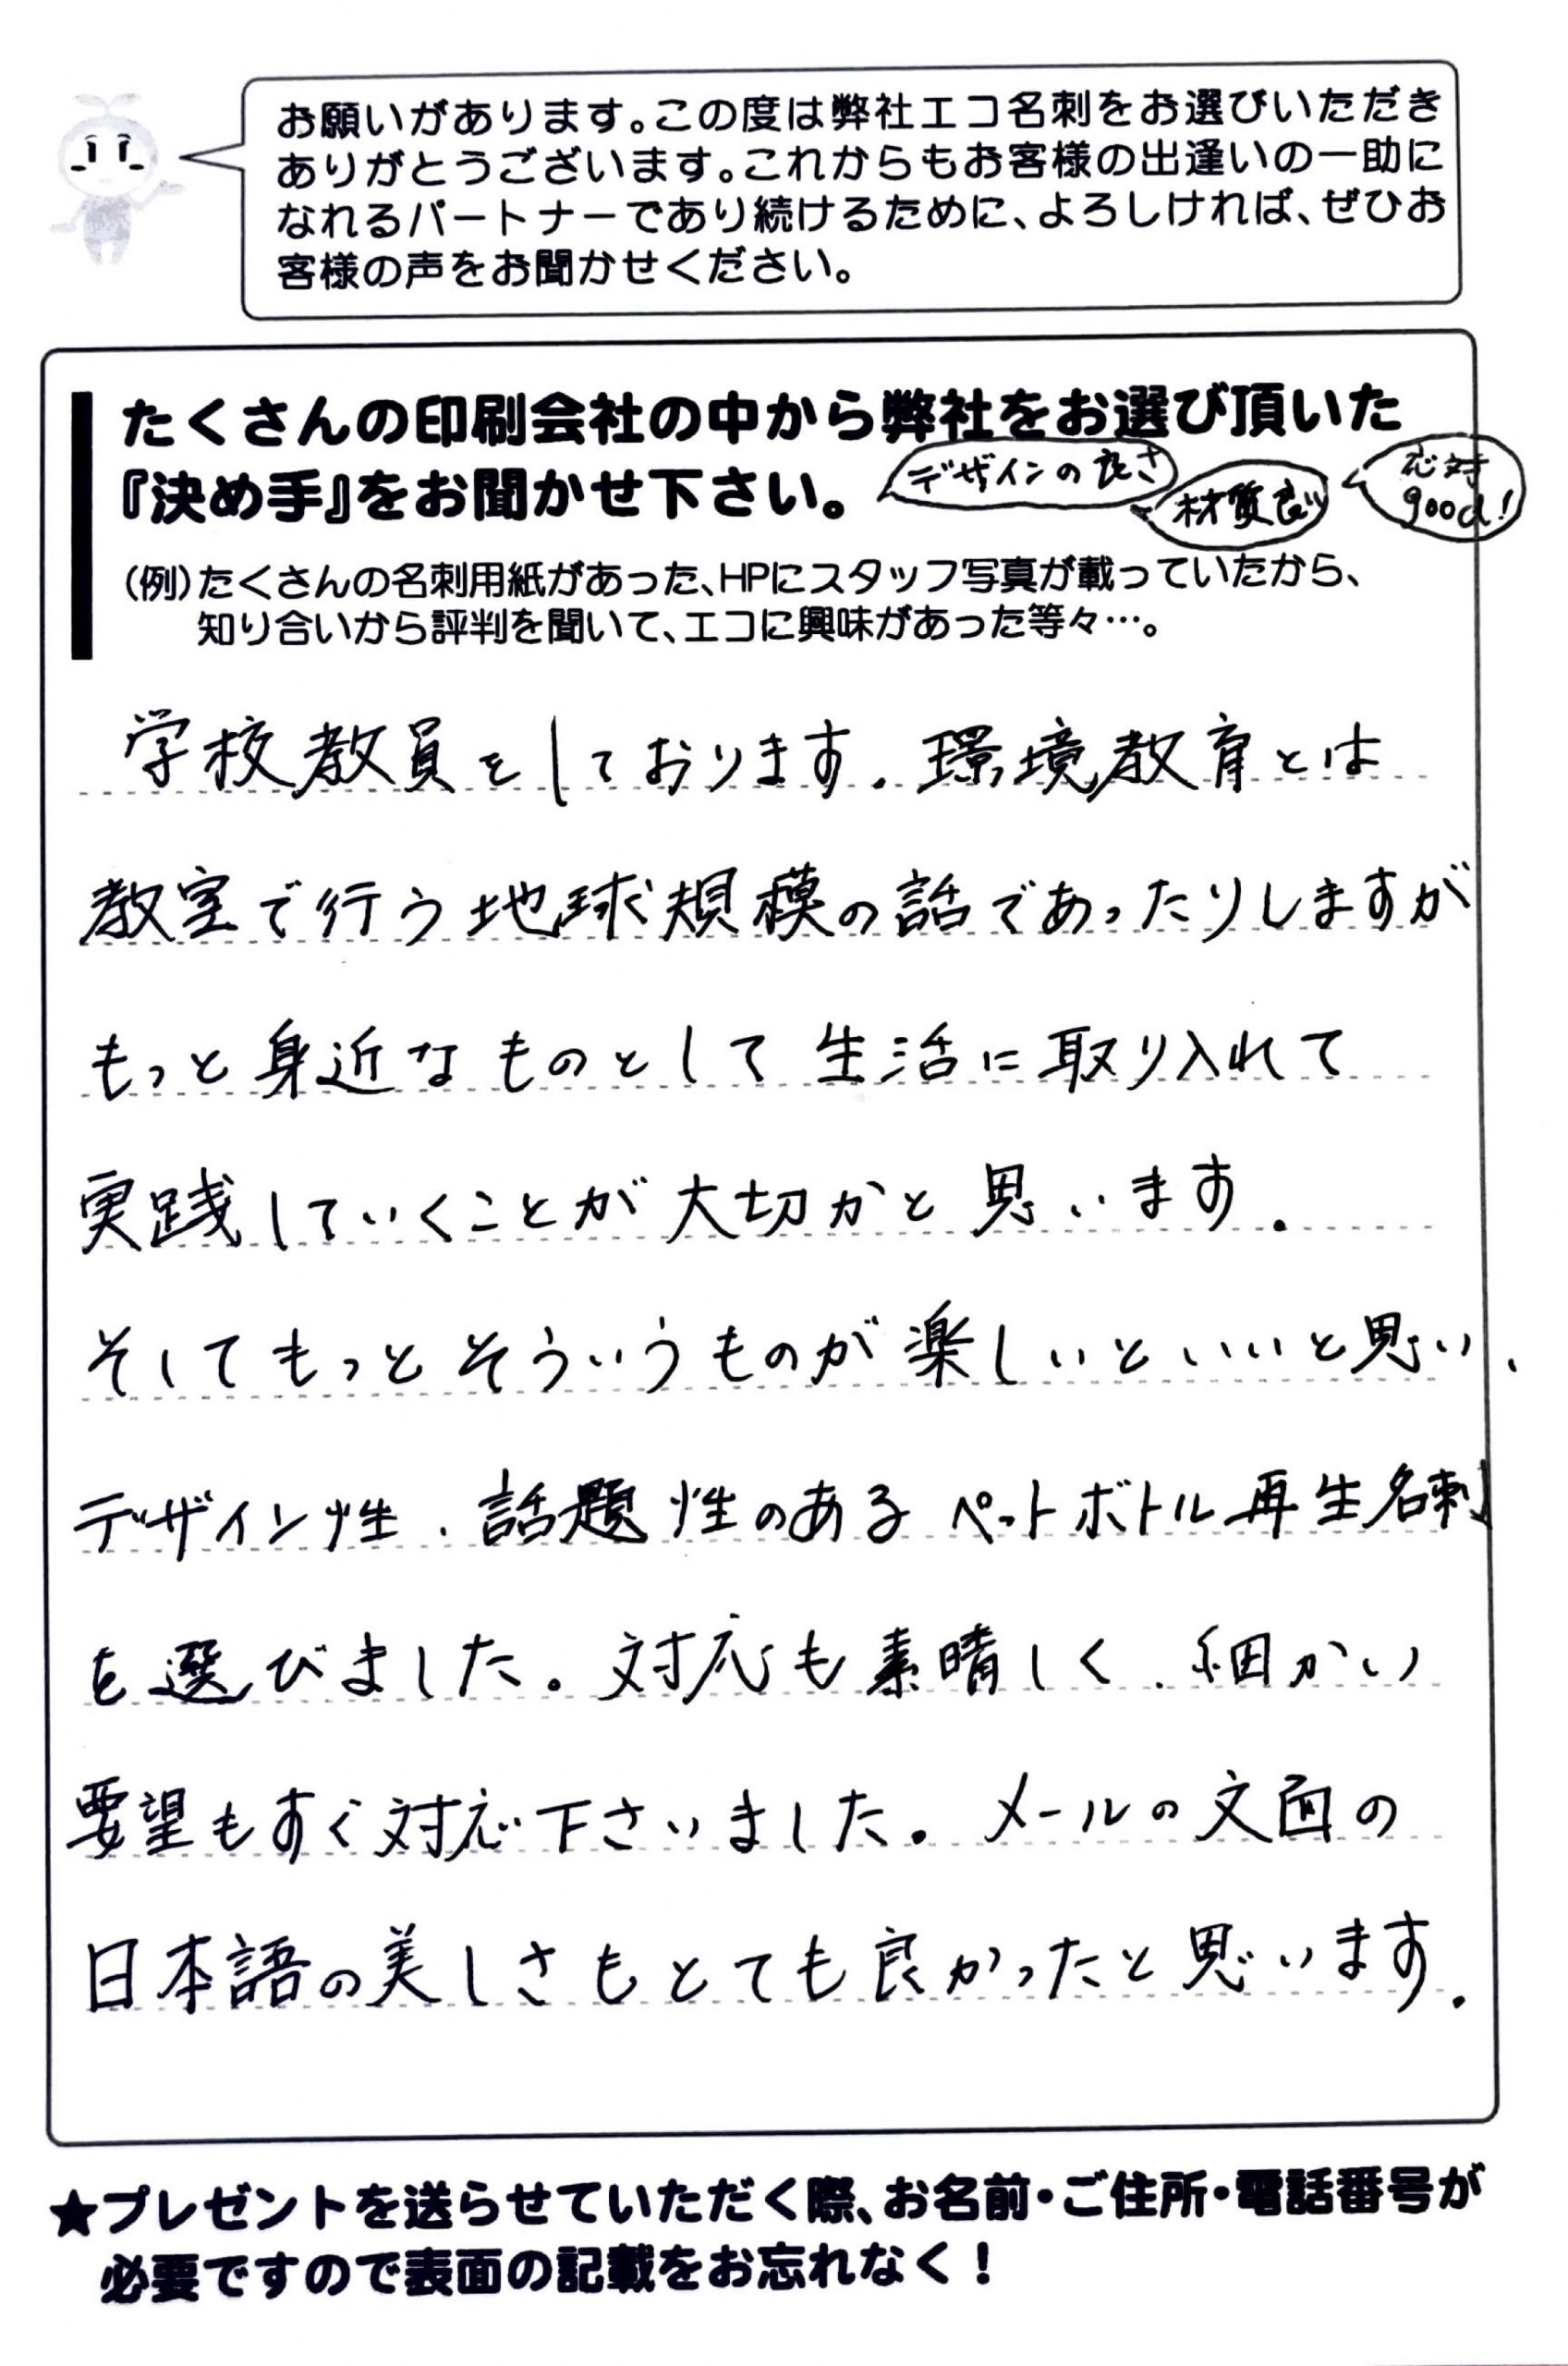 お願いがあります。この度は弊社エコ名刺をお選びいただき
ありがとうございます。これからもお客様の出逢いの一助に
なれるパートナーであり続けるために、よろしければ、ぜひお
客様の声をお聞かせください。
たくさんの印刷会社の中から弊社をお選び頂いた
『決め手』をお聞かせ下さい。
デザインの良さ
材質良
応対
good!
(例)たくさんの名刺用紙があった、HPにスタッフ写真が載っていたから、
知り合いから評判を聞いて、エコに興味があった等々…。
学校教員をしております.環境教育とは
教室で行う地球規模の話であったりしますが
もっと身近なものとして生活に取り入れて
実践していくことが大切かと思います.
そしてもっとそういうものが楽しいといいと思い、
デザイン性、話題性のあるペットボトル再生名刺
を選びました。対応も素晴しく、細かい
要望もすぐ対応下さいました。メールの文面の
日本語の美しさもとても良かったと思います.
★プレゼントを送らせていただく際、お名前・ご住所・電話番号が
必要ですので表面の記載をお忘れなく!